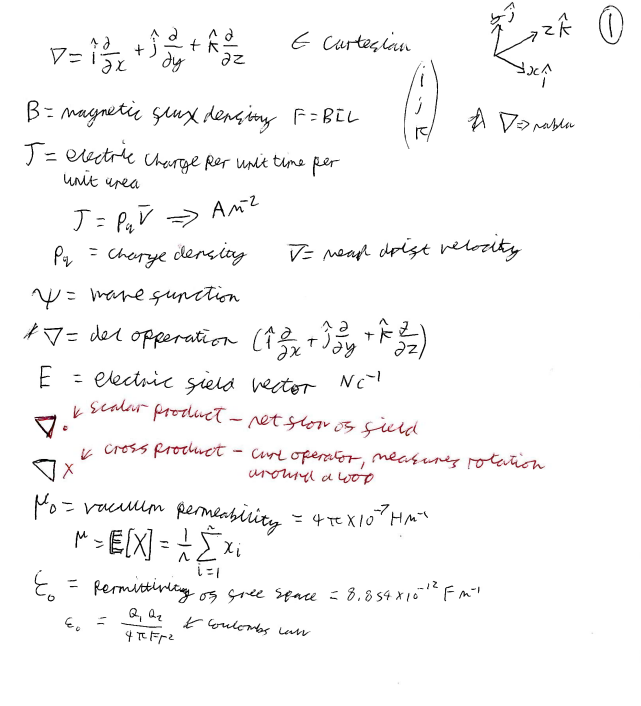 ①
y ĵ
z k̂
x î
∇ = î ∂/∂x + ĵ ∂/∂y + k̂ ∂/∂z ∈ Cartesian
(i j k)
B = magnetic flux density F = BIL
* ∇ => nabla
J = electric charge per unit time per
unit area
J = ρq v̄ => Am⁻²
ρq = charge density v̄ = mean drift velocity
Ψ = wave function
* ∇ = del opperation (î ∂/∂x + ĵ ∂/∂y + k̂ ∂/∂z)
E = electric field vector NC⁻¹
∇· ↙ scalar product - net flow of field
∇× ↙ cross product - curl operator, measures rotation
around a loop
μ₀ = vacuum permeability = 4π×10⁻⁷ Hm⁻¹
μ = E[X] = 1/n Σ_{i=1}^{n} xᵢ
ε₀ = Permittivity of free space = 8.854×10⁻¹² Fm⁻¹
ε₀ = Q₁Q₂/4πFr² ← coulombs law